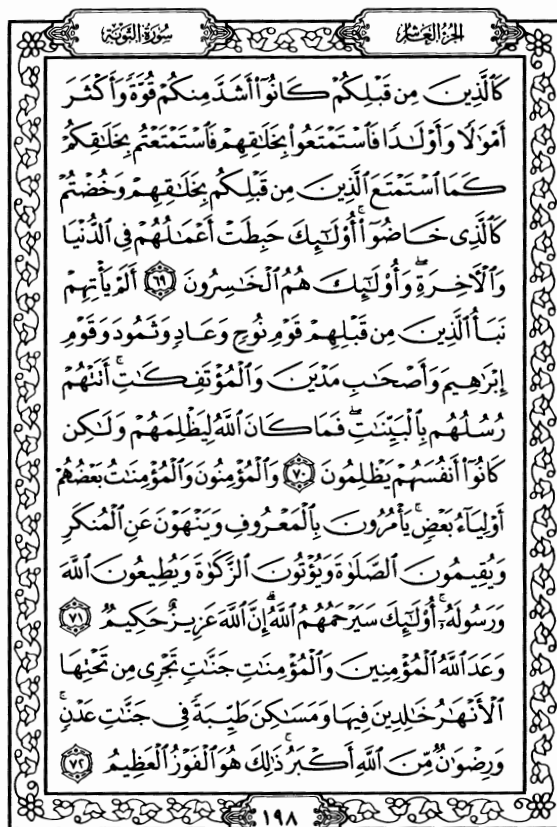 سُورَةُ التَّوْبَةِ
الجُزْءُ العَاشِرُ
كَالَّذِينَ مِن قَبْلِكُمْ كَانُوٓا۟ أَشَدَّ مِنكُمْ قُوَّةً وَأَكْثَرَ
أَمْوَٰلًا وَأَوْلَٰدًا فَٱسْتَمْتَعُوا۟ بِخَلَٰقِهِمْ فَٱسْتَمْتَعْتُم بِخَلَٰقِكُمْ
كَمَا ٱسْتَمْتَعَ ٱلَّذِينَ مِن قَبْلِكُم بِخَلَٰقِهِمْ وَخُضْتُمْ
كَٱلَّذِى خَاضُوٓا۟ ۚ أُو۟لَٰٓئِكَ حَبِطَتْ أَعْمَٰلُهُمْ فِى ٱلدُّنْيَا
وَٱلْءَاخِرَةِ ۖ وَأُو۟لَٰٓئِكَ هُمُ ٱلْخَٰسِرُونَ ٦٩ أَلَمْ يَأْتِهِمْ
نَبَأُ ٱلَّذِينَ مِن قَبْلِهِمْ قَوْمِ نُوحٍ وَعَادٍ وَثَمُودَ وَقَوْمِ
إِبْرَٰهِيمَ وَأَصْحَٰبِ مَدْيَنَ وَٱلْمُؤْتَفِكَٰتِ ۚ أَتَتْهُمْ
رُسُلُهُم بِٱلْبَيِّنَٰتِ ۖ فَمَا كَانَ ٱللَّهُ لِيَظْلِمَهُمْ وَلَٰكِن
كَانُوٓا۟ أَنفُسَهُمْ يَظْلِمُونَ ٧٠ وَٱلْمُؤْمِنُونَ وَٱلْمُؤْمِنَٰتُ بَعْضُهُمْ
أَوْلِيَآءُ بَعْضٍ ۚ يَأْمُرُونَ بِٱلْمَعْرُوفِ وَيَنْهَوْنَ عَنِ ٱلْمُنكَرِ
وَيُقِيمُونَ ٱلصَّلَوٰةَ وَيُؤْتُونَ ٱلزَّكَوٰةَ وَيُطِيعُونَ ٱللَّهَ
وَرَسُولَهُۥٓ ۚ أُو۟لَٰٓئِكَ سَيَرْحَمُهُمُ ٱللَّهُ ۗ إِنَّ ٱللَّهَ عَزِيزٌ حَكِيمٌ ٧١
وَعَدَ ٱللَّهُ ٱلْمُؤْمِنِينَ وَٱلْمُؤْمِنَٰتِ جَنَّٰتٍ تَجْرِى مِن تَحْتِهَا
ٱلْأَنْهَٰرُ خَٰلِدِينَ فِيهَا وَمَسَٰكِنَ طَيِّبَةً فِى جَنَّٰتِ عَدْنٍ ۚ
وَرِضْوَٰنٌ مِّنَ ٱللَّهِ أَكْبَرُ ۚ ذَٰلِكَ هُوَ ٱلْفَوْزُ ٱلْعَظِيمُ ٧٢
١٩٨